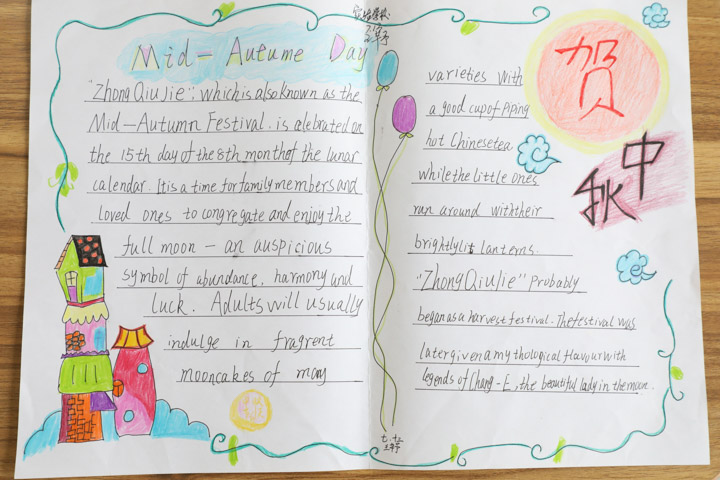 Mid-Autume Day
"Zhong Qiu Jie", which is also known as the
Mid-Autumn Festival. is alebrated on
the 15th day of the 8th month of the lunar
calendar. It is a time for family members and
loved ones to congregate and enjoy the
full moon - an auspicious
symbol of abundance, harmony and
luck. Adults will usually
indulge in fragrent
mooncakes of many
varieties with
a good cup of piping
hot Chinese tea
while the little ones
run around with their
brightly lit lanterns.
"Zhong Qiu Jie" Probably
began as a harvest festival. The festival was
later given a mythological flavour with
legends of Chang-E, the beautiful lady in the moon.
贺
中
秋